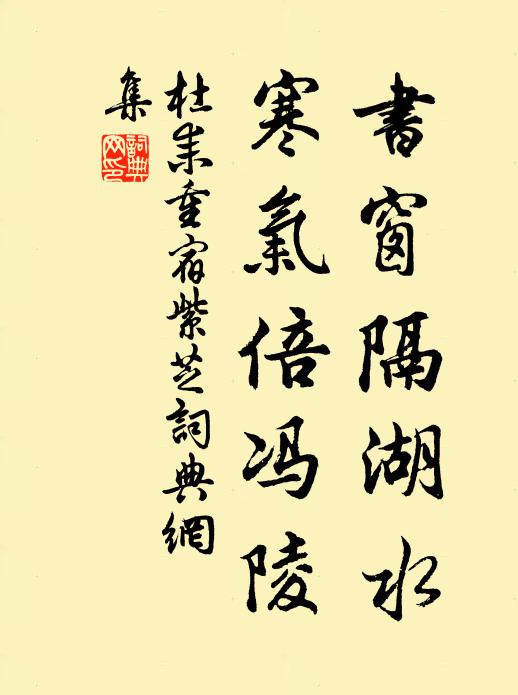 書窗隔湖水
寒氣倍冯陵
杜耒重宿紫芝詞典網
集
詞典
网印